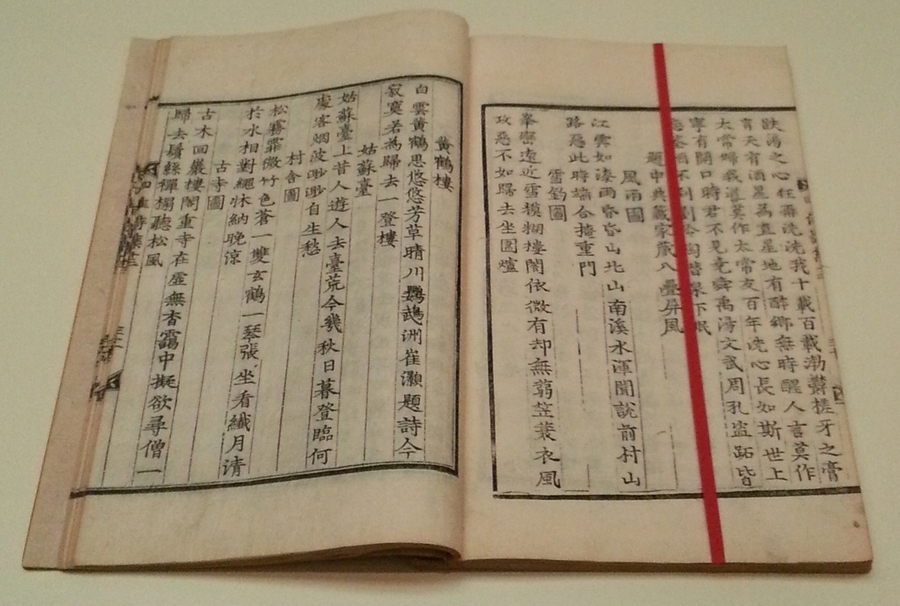 之心狂瀾洗洗我十載百載渤鬱槎牙之膏
肓天有酒星爲直星地有醉鄉無時醒人言莫作
太常婦我道莫作太常友百年洗心長如斯世上
寧有開口時君不見堯舜禹湯文武周孔盜跖皆
題中典藏家藏八疊屏風
風雨圖
江雲如潑雨昏昏山北山南溪水渾聞說前村山
路惡此時端合掩重門
雪釣圖
峯巒遠近雪模糊樓閣依微有却無蒻笠蓑衣風
攻惡不如歸去坐圍爐
黃鶴樓
白雲黃鶴思悠悠芳草晴川鸚鵡洲崔灝題詩今
寂寞君為歸去一登樓
姑蘇臺
姑蘇臺上昔人遊人去臺荒今幾秋日暮登臨何
處客烟波渺渺自生愁
村舍圖
松霧霏微竹色蒼一雙玄鶴一琴張坐看纖月清
於水相對繩牀納晚涼
古寺圖
古木回巖樓閣重寺在虛無杳靄中擬欲尋僧一
歸去鬢絲禪榻聽松風